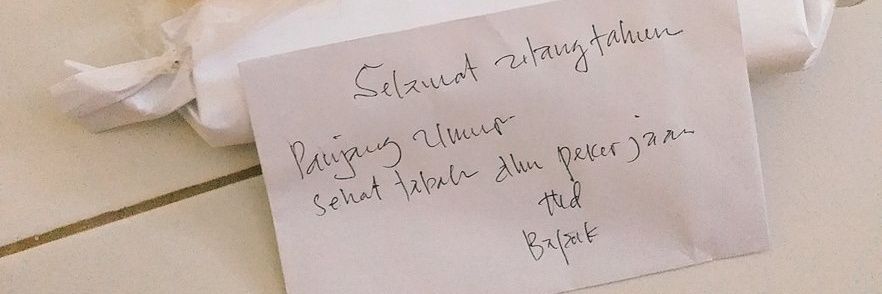 Selamat ulang tahun
Panjang Umur
sehat tabah dlm pekerjaan
ttd
Bapak